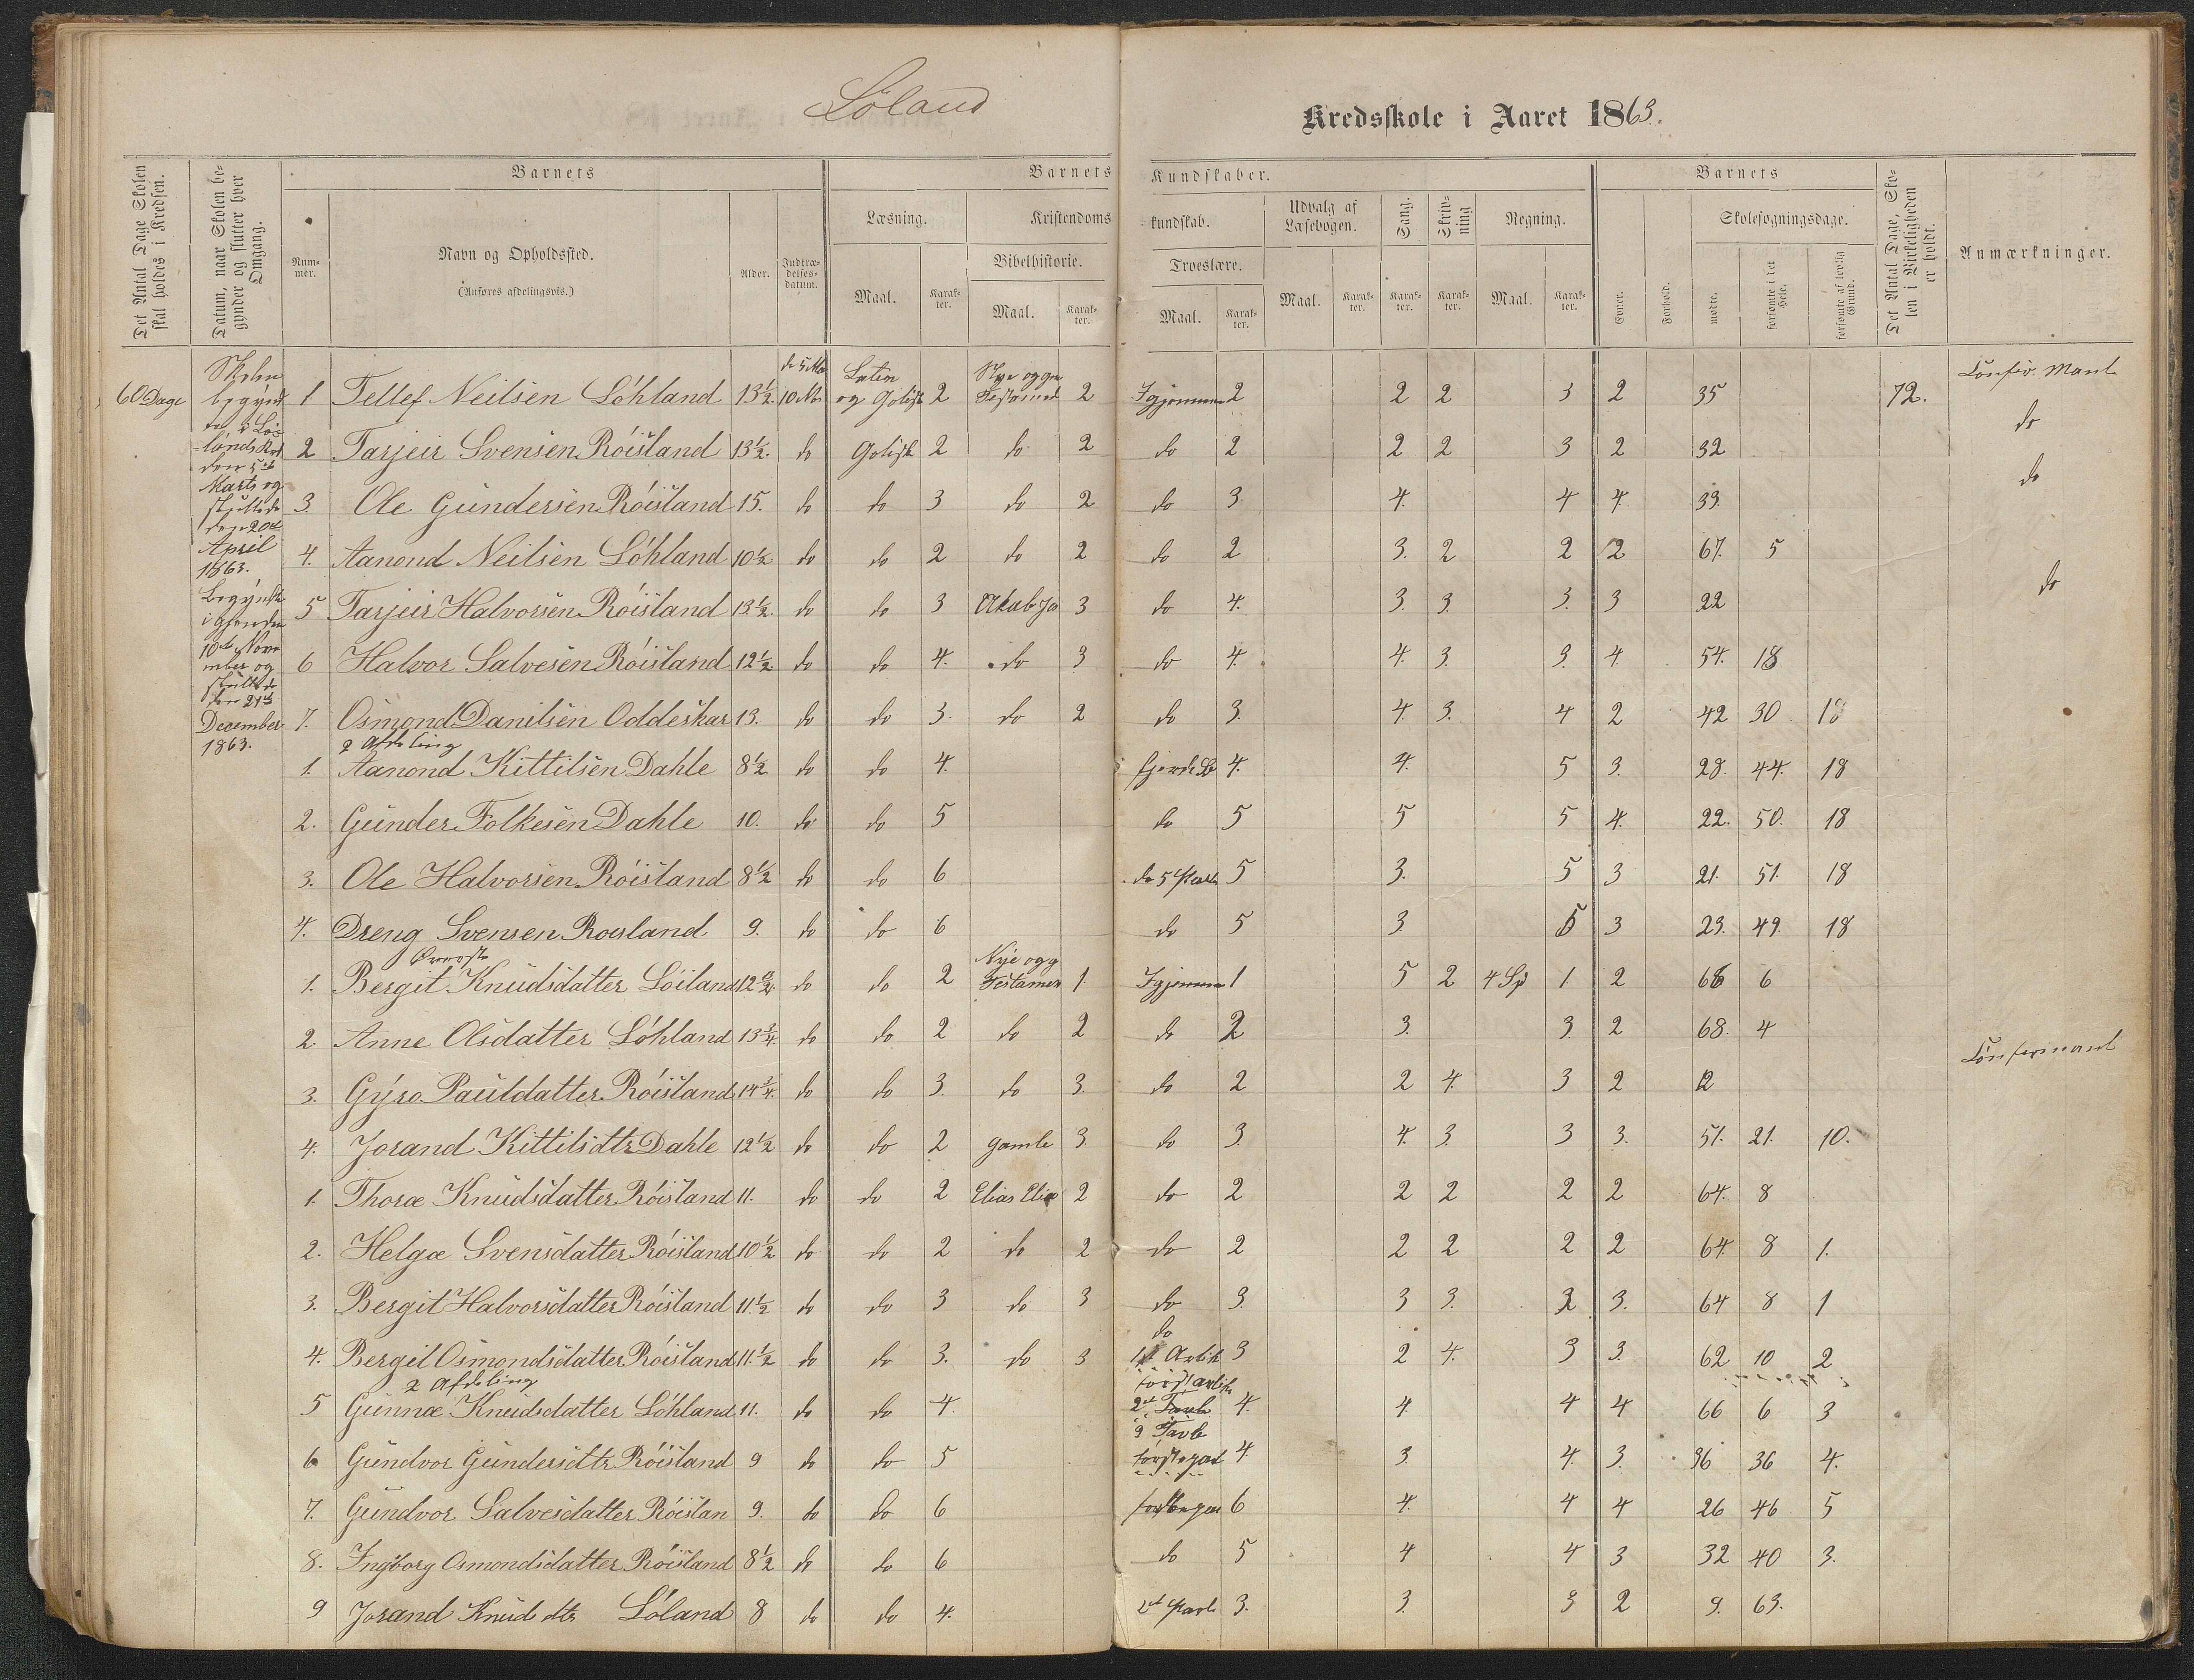 Löland
Kredsskole i Aaret 1863.
Det Antal Dage Skolen skal holdes i Kredsen.
Datum, naar Skolen begynder og slutter hver Omgang.
Barnets
Nummer.
Navn og Opholdssted.
(Anføres afdelingsvis.)
Alder.
Indtrædelsesdatum.
Barnets Kundskaber.
Læsning.
Maal.
Karakter.
Kristendomskundskab.
Bibelhistorie.
Maal.
Karakter.
Troeslære.
Maal.
Karakter.
Udvalg af Læsebogen.
Maal.
Karakter.
Sang.
Karakter.
Skrivning
Karakter.
Regning.
Maal.
Karakter.
Barnets
Evner.
Forhold.
Skolesøgningsdage.
mødte.
forsømte i det Hele.
forsømte af lovlig Grund.
Det Antal Dage, Skolen i Virkeligheden er holdt.
Anmærkninger.
60 Dage
Skolen
begynd
Marts og
den 20de
April
1863.
Begyndte
10de Novem
mber og
den 21de
December
1863.
1 Tellef Neilsen Löhland 13½ 10 Nov og Gotisk 2 Testament 2 Igjennem 2 2 2 3 2 35 72.
2 Tarjeir Svensen Röisland 13½. do Gotisk 2 do 2 do 2 2 2 3 2 32 do
3. Ole Gundersen Röisland 15. do do 3 do 2 do 3. 4. 4 4. 33. do
4. Aanond Neilsen Löhland 10½ do do 2 do 2 do 2 3. 2 2 2 67. 5
5 Tarjeir Halvorsen Röisland 13½. do do 3 3 do 4. 3. 3. 3. 3 22 do
6 Halvor Salvesen Röisland 12½ do do 4. do 3 do 4. 4. 3. 3. 4. 54. 18
7. Osmond Danilsen Oddeskar 13. do do 3. do 2 do 3. 4. 3. 4 2 42 30 18
2 Afdeling
1. Aanond Kittilsen Dahle 8½ do do 4. 4. 4. 5 3. 28. 44. 18
2. Gunder Folkesen Dahle 10. do do 5 do 5 5 5 4. 22. 50. 18
3. Ole Halvorsen Röisland 8½ do do 6 do 5 Part 5 3. 5 3 21. 51. 18
4. Dreng Svensen Roisland 9. do do 6 do 5 3. 5 3 23. 49. 18
Øverste
1. Bergit Knudsdatter Löiland 12¾. do do 2 Nye og g Testamen 1. Igjennem 1 5 2 4 Sp 1 2 66 6
2. Anne Olsdatter Löhland 13¾. do do 2 do 2 do 2 3. 3. 2 68. 4
3. Gyro Pauldatter Röisland 14¾. do do 3. do 3. do 2 2 4. 3 2 12
4. Jorand Kittilsdtr Dahle 12½ do do 2 gamle 3 do 3. 4. 3. 3 3. 51. 21. 10.
1. Thoræ Knudsdatter Röisland 11. do do 2 Elias 2 do 2 2 2 2 2 64. 8
2. Helgæ Svensdatter Röisland 10½ do do 2 do 2 do 2 2 2 2 2 64. 8 1.
3. Bergit Halvorsdatter Röisland 11.½ do do 3 do 3 do 3. 3 3. 3. 64 8 1
4. Bergit Osmondsdatter Röisland 11.½ do do 3. do 3 do 3 2 4. 3 3. 62 10 2
2 Afdeling
5 Gunnæ Knudsdatter Löhland 11. do do 4. 4. 4. 4 4 66 6 3
6 Gundvor Gundersdtr Röisland 9 do do 5 4. 3 4. 3. 36 36 4.
7. Gundvor Salvesdatter Röislan 9. do do 6 6 4. 4 4 26 46 5
8. Ingborg Osmondsdatter Röisland 8½ do do 6 do 5 4 4 3 32 40 3.
9 Jorand Knudsdtr Löland 8 do do 4. 3. 3. 3 2 9. 63.